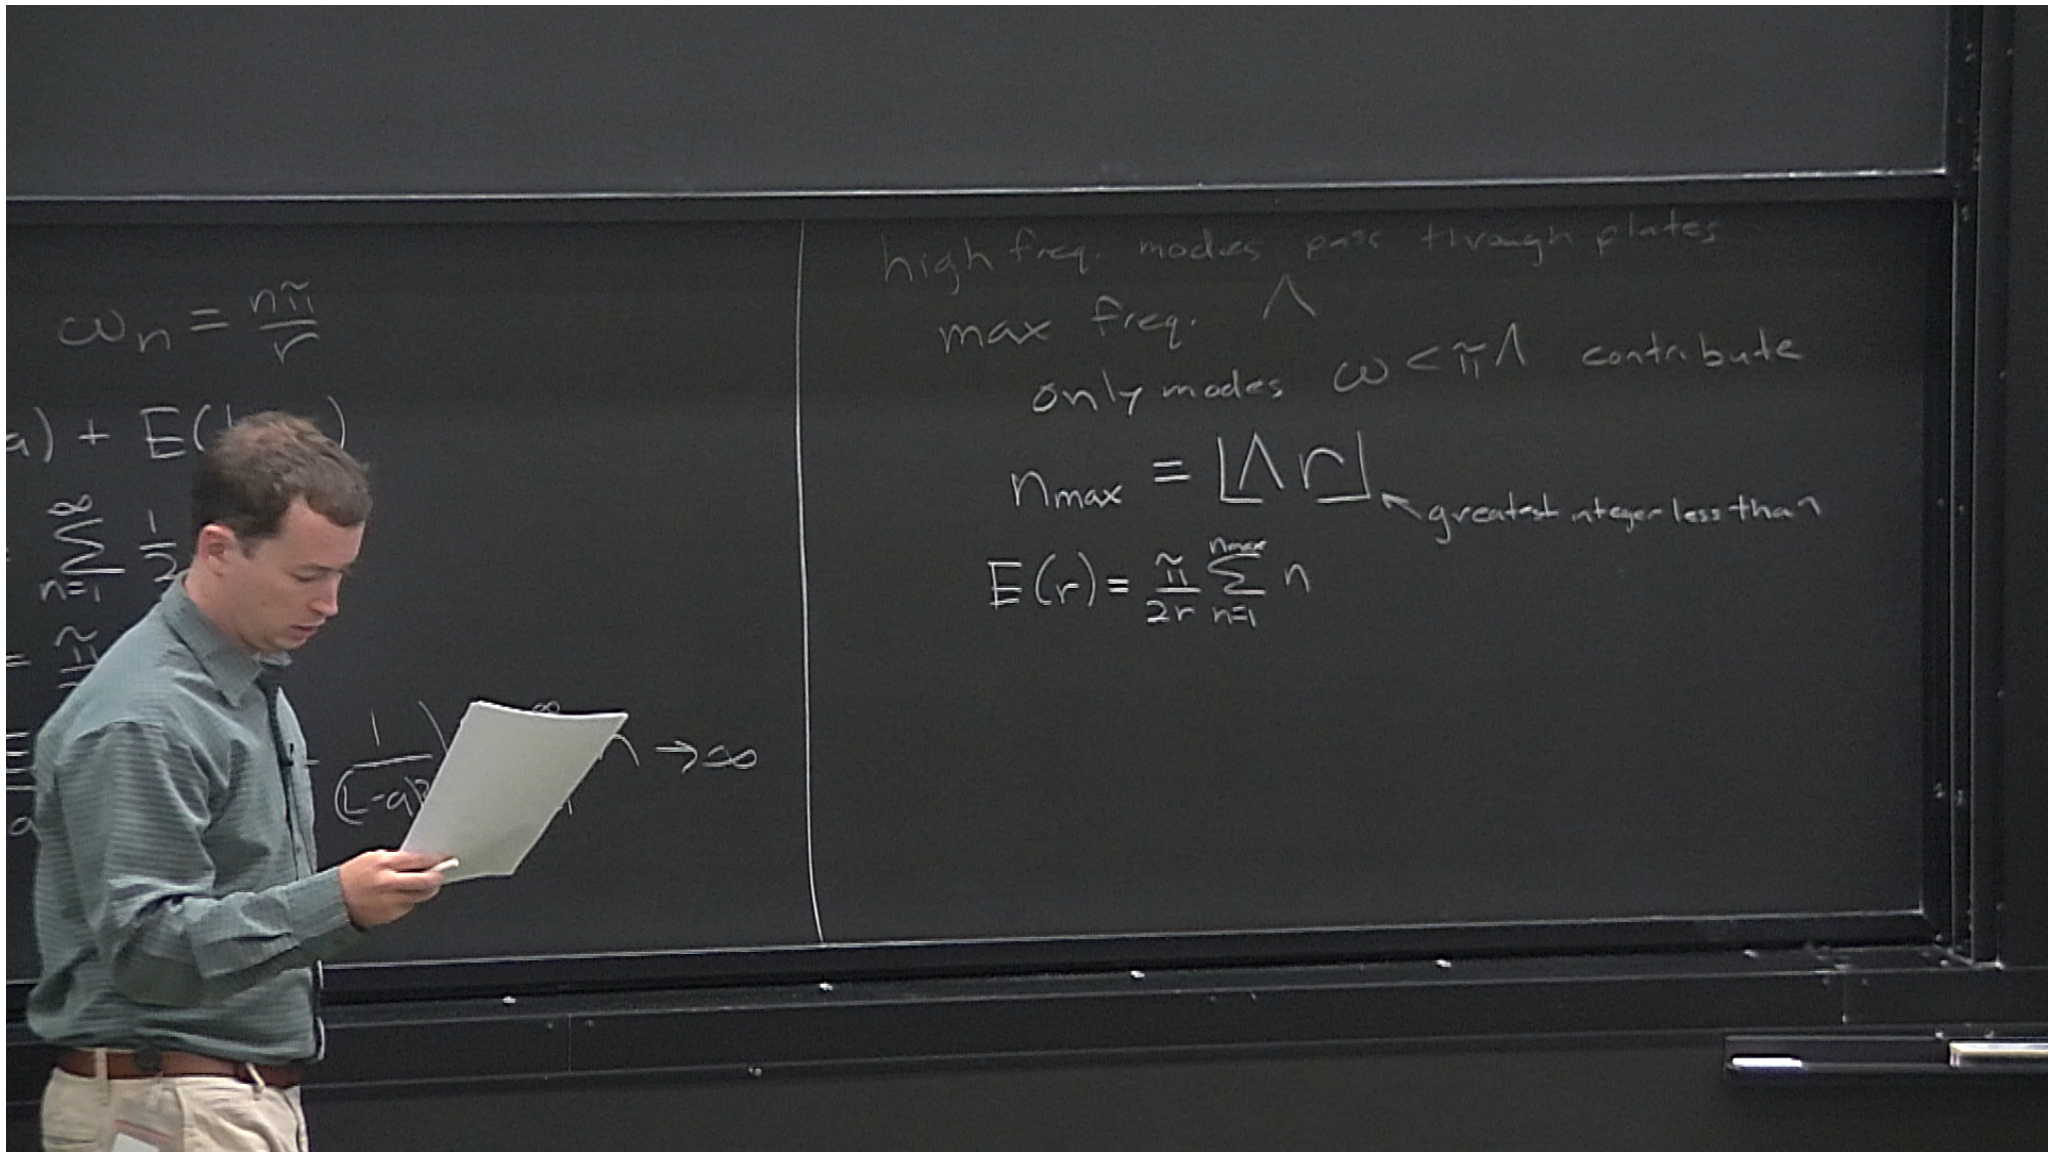 ωₙ = nπ/r
a) + E(
∞ Σ n=1 1/2
= π
1/(L-a)² ∞ n → ∞
high freq. modes pass through plates
max freq. Λ
only modes ω < πΛ contribute
n_max = ⌊Λr⌋ ↖ greatest integer less than
E(r) = π/2r Σ n=1 n_max n